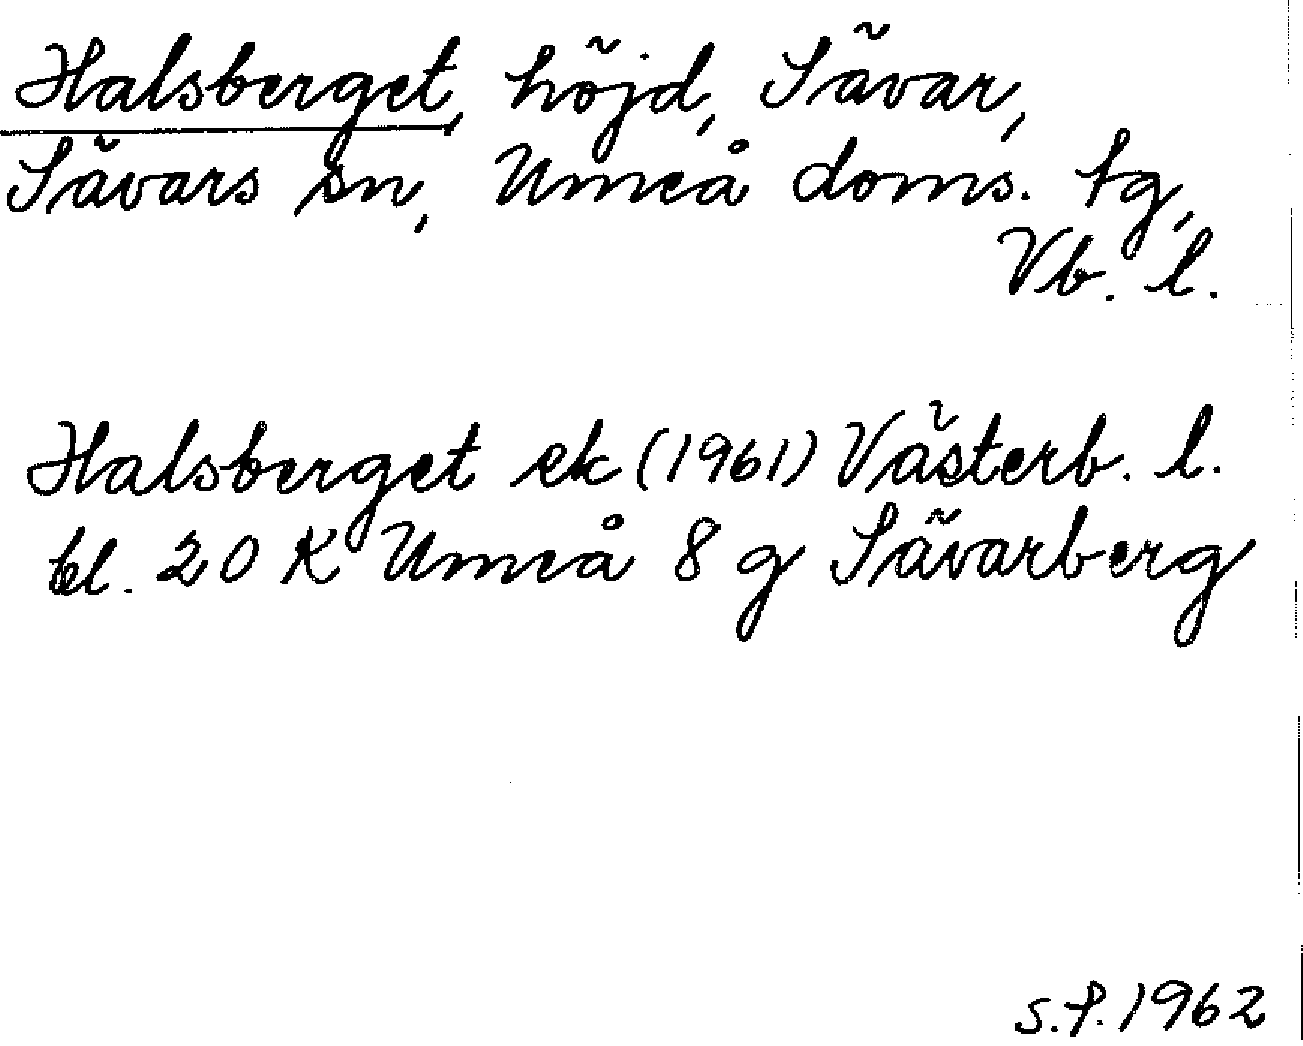 Halsberget, höjd, Sävar,
Sävars sn, Umeå doms. tg,
Vb. l.
Halsberget ek (1961) Västerb. l.
bl. 20 K Umeå 8 g Sävarberg
s.f. 1962